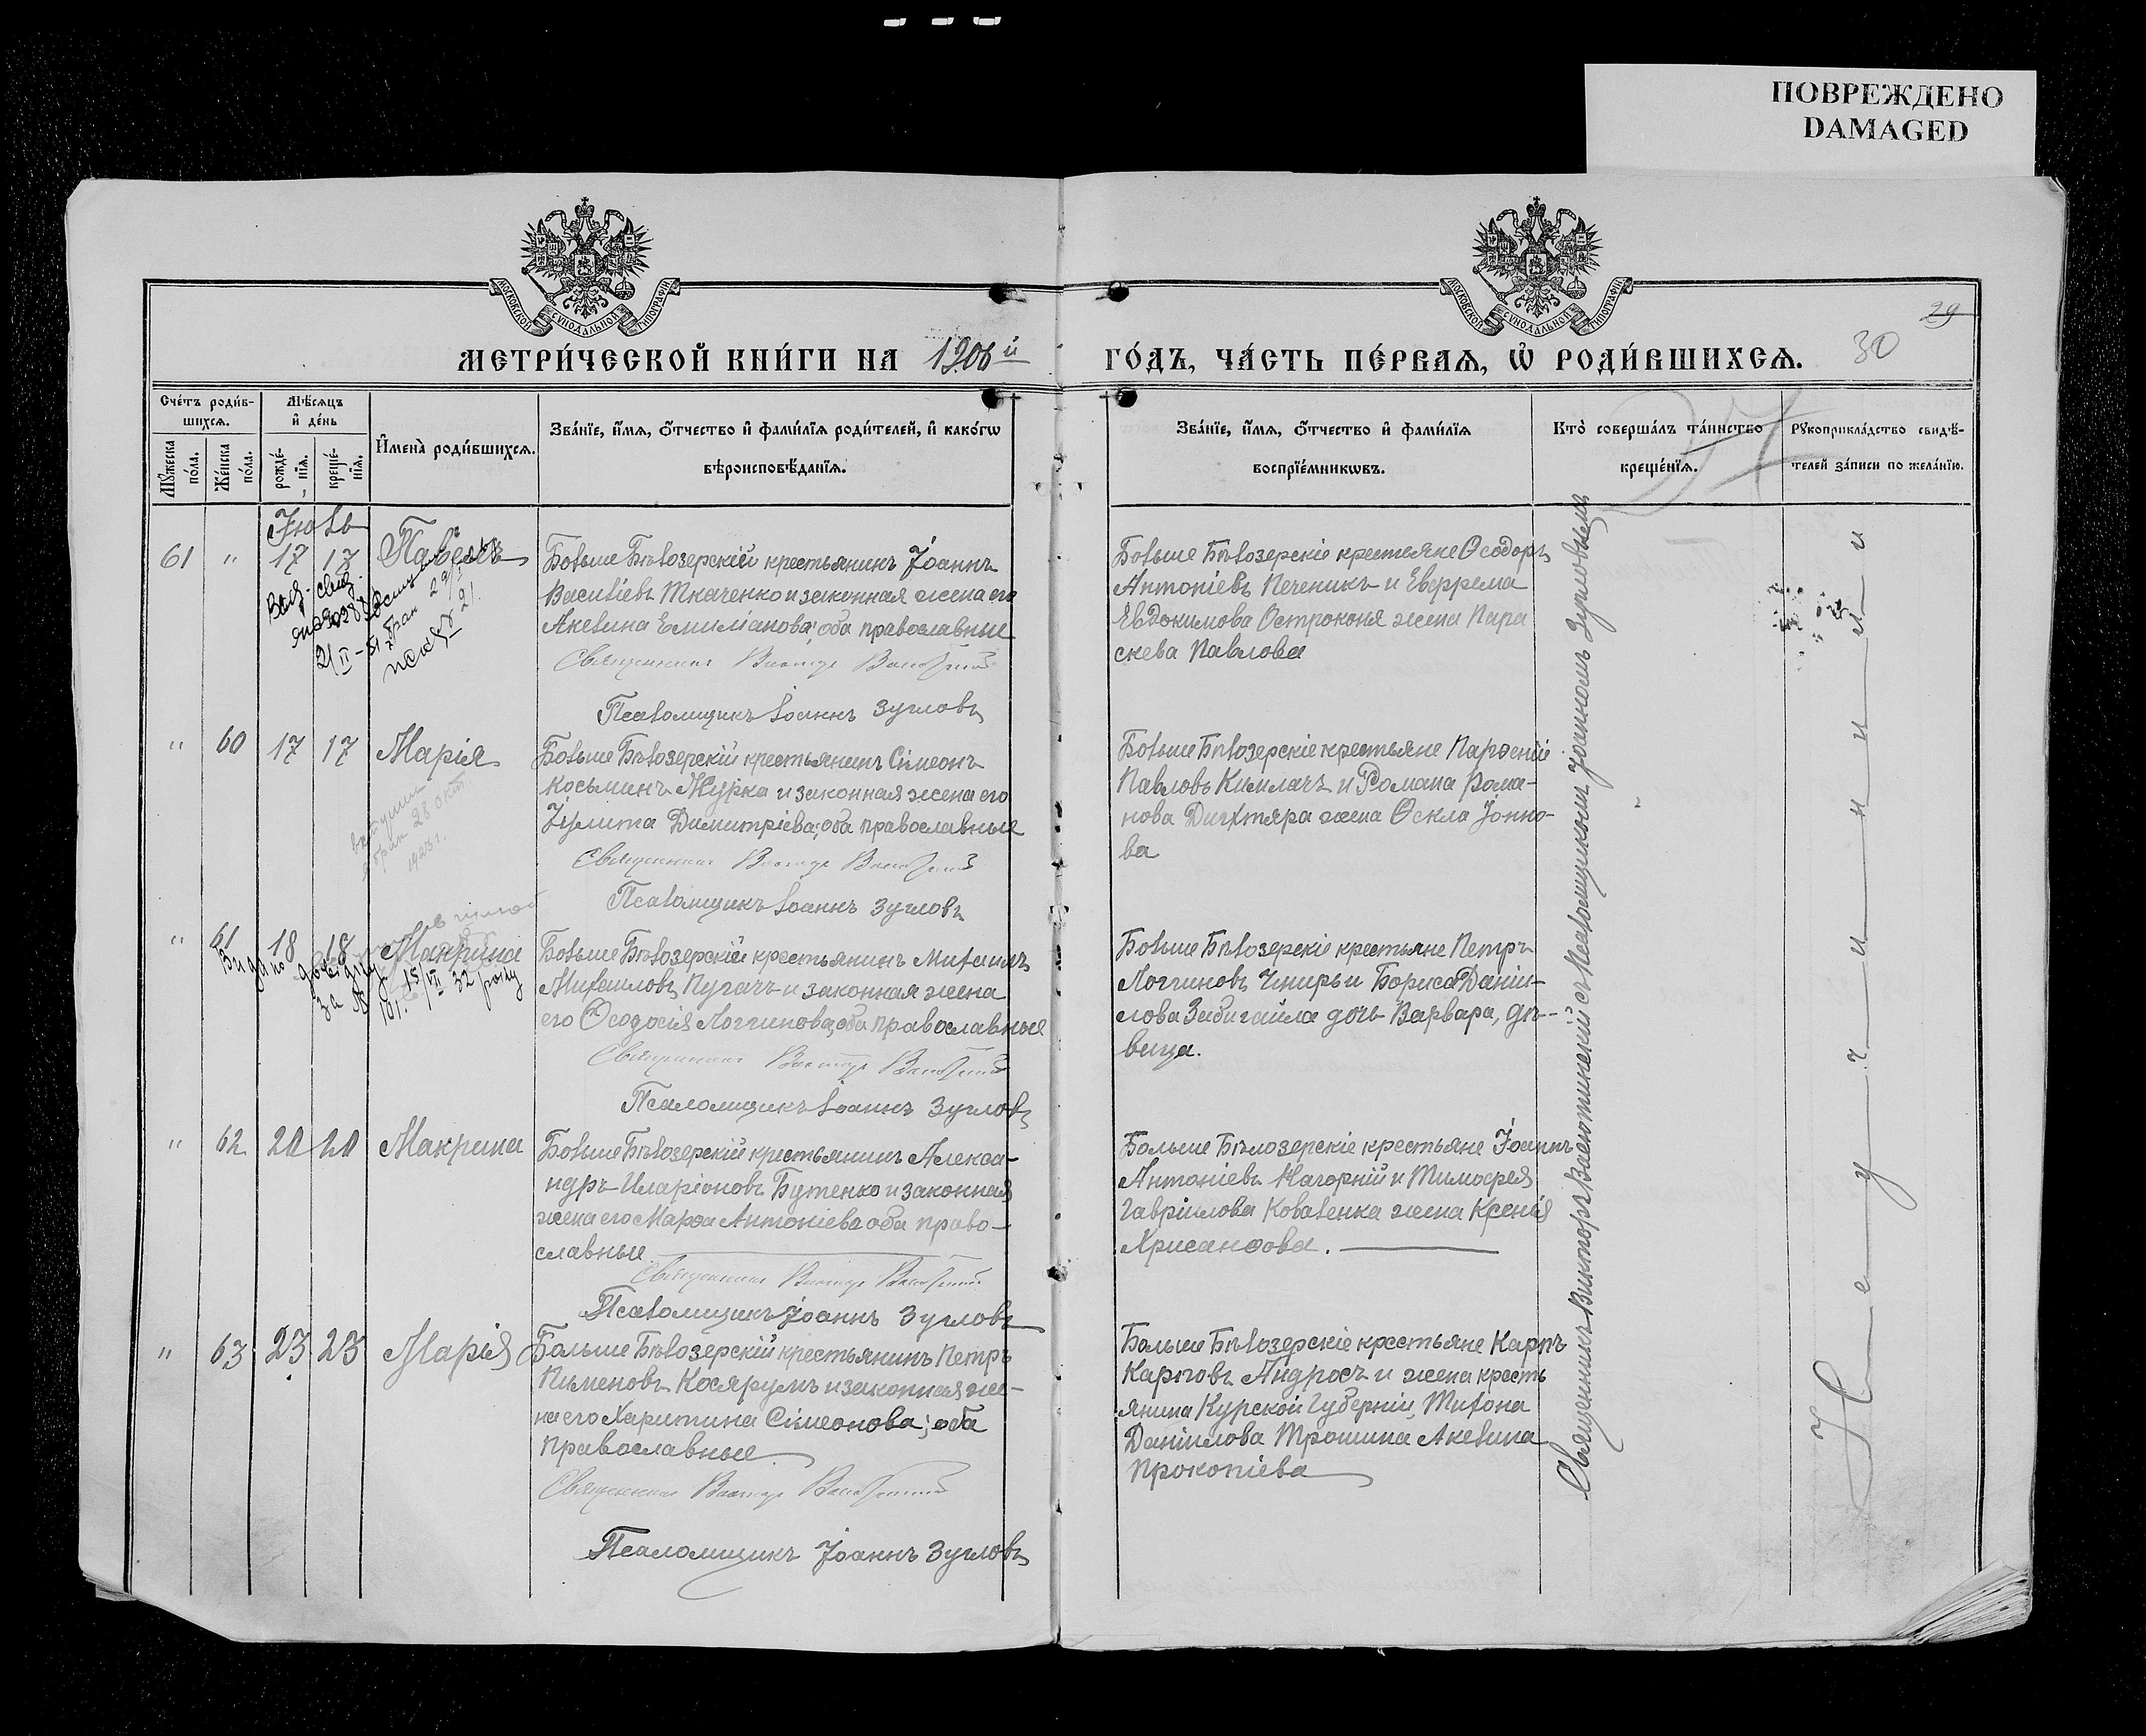 ПОВРЕЖДЕНО
DAMAGED
МОСКОВСКОЙ СѴНОДАЛЬНОЙ ТИПОГРАФІИ
МОСКОВСКОЙ СѴНОДАЛЬНОЙ ТИПОГРАФІИ
29
МЕТРИ́ЧЕСКОЙ КНИ́ГИ НА 1906 й ГО́ДЪ, ЧА́СТЬ ПЕ́РВАѦ, Ѡ҆ РОДИ́ВШИХСѦ. 30
Сче́тъ роди́в-
шихсѧ.
Мꙋ́жеска по́ла.
Же́нска по́ла.
Мѣ́сѧцъ
и҆ де́нь
рожде́-
нїѧ.
креще́-
нїѧ.
И҆мена̀ роди́вшихсѧ.
Зва́нїе, и҆́мѧ, ѻ҆́тчество и҆ фами́лїѧ роди́телей, и҆ како́гѡ
вѣроисповѣ́данїѧ.
Зва́нїе, и҆́мѧ, ѻ҆́тчество и҆ фами́лїѧ
воспрїе́мникѡвъ.
Кто̀ соверша́лъ та́инство
креще́нїѧ.
Рꙋкоприкла́дство свидѣ́-
телей за́писи по жела́нїю.
Іюль
61 " 17 17 Павелъ
Больше Бѣлозерскій крестьянинъ Іоаннъ
Василіевъ Ткаченко и законная жена его
Акелина Емиліанова; оба православные
Священникъ Викторъ
Псаломщикъ Іоаннъ Зугловъ
Больше Бѣлозерскіе крестьяне Ѳеодоръ
Антоніевъ Печеникъ и Еверрема
Евдокимова Остроконя жена Пара
скева Павлова
" 60 17 17 Марія
вступил
в брак 28 окт.
192 г.
Больше Бѣлозерскій крестьянинъ Сімеонъ
Косьминъ Журка и законная жена его
Іулита Димитріева; оба православные
Священникъ Викторъ
Псаломщикъ Іоаннъ Зугловъ
Больше Бѣлозерскіе крестьяне Парѳеній
Павловъ Килличъ и Романа Рома-
нова Дихтяра жена Ѳекла Іонно-
ва
" 61 18 18 Макрина
Видано довідку
за № 101. 15/VII 32 року
Больше Бѣлозерскій крестьянинъ Михаилъ
Михаиловъ Пугачъ и законная жена
его Ѳеодосія Логгинова; оба православные
Священникъ Викторъ
Псаломщикъ Іоаннъ Зугловъ
Больше Бѣлозерскіе крестьяне Петръ
Логгиновъ Чмиръ и Бориса Даніи-
лова Забигайла дочь Варвара, дѣ-
вица.
" 62 20 20 Макрина
Больше Бѣлозерскій крестьянинъ Алекса-
ндръ Иларіоновъ Бутенко и законная
жена его Марѳа Антоніева оба право-
славные
Священникъ Викторъ
Псаломщикъ Іоаннъ Зугловъ
Больше Бѣлозерскіе крестьяне Іоаннъ
Антоніевъ Нагорній и Тимоѳея
Гавріилова Коваленка жена Ксенія
Хрисанѳова.
" 63 23 23 Марія
Больше Бѣлозерскій крестьянинъ Петръ
Пименовъ Косярумъ и законная же-
на его Харитина Сімеонова; оба
православные
Священникъ Викторъ
Псаломщикъ Іоаннъ Зугловъ
Больше Бѣлозерскіе крестьяне Карпъ
Карповъ Андросъ и жена кресть
янина Курской Губерніи, Тихона
Даніилова Трошина Акелина
Прокопіева
Священникъ Викторъ съ Псаломщикомъ Іоанномъ Зугловымъ
Не учинили